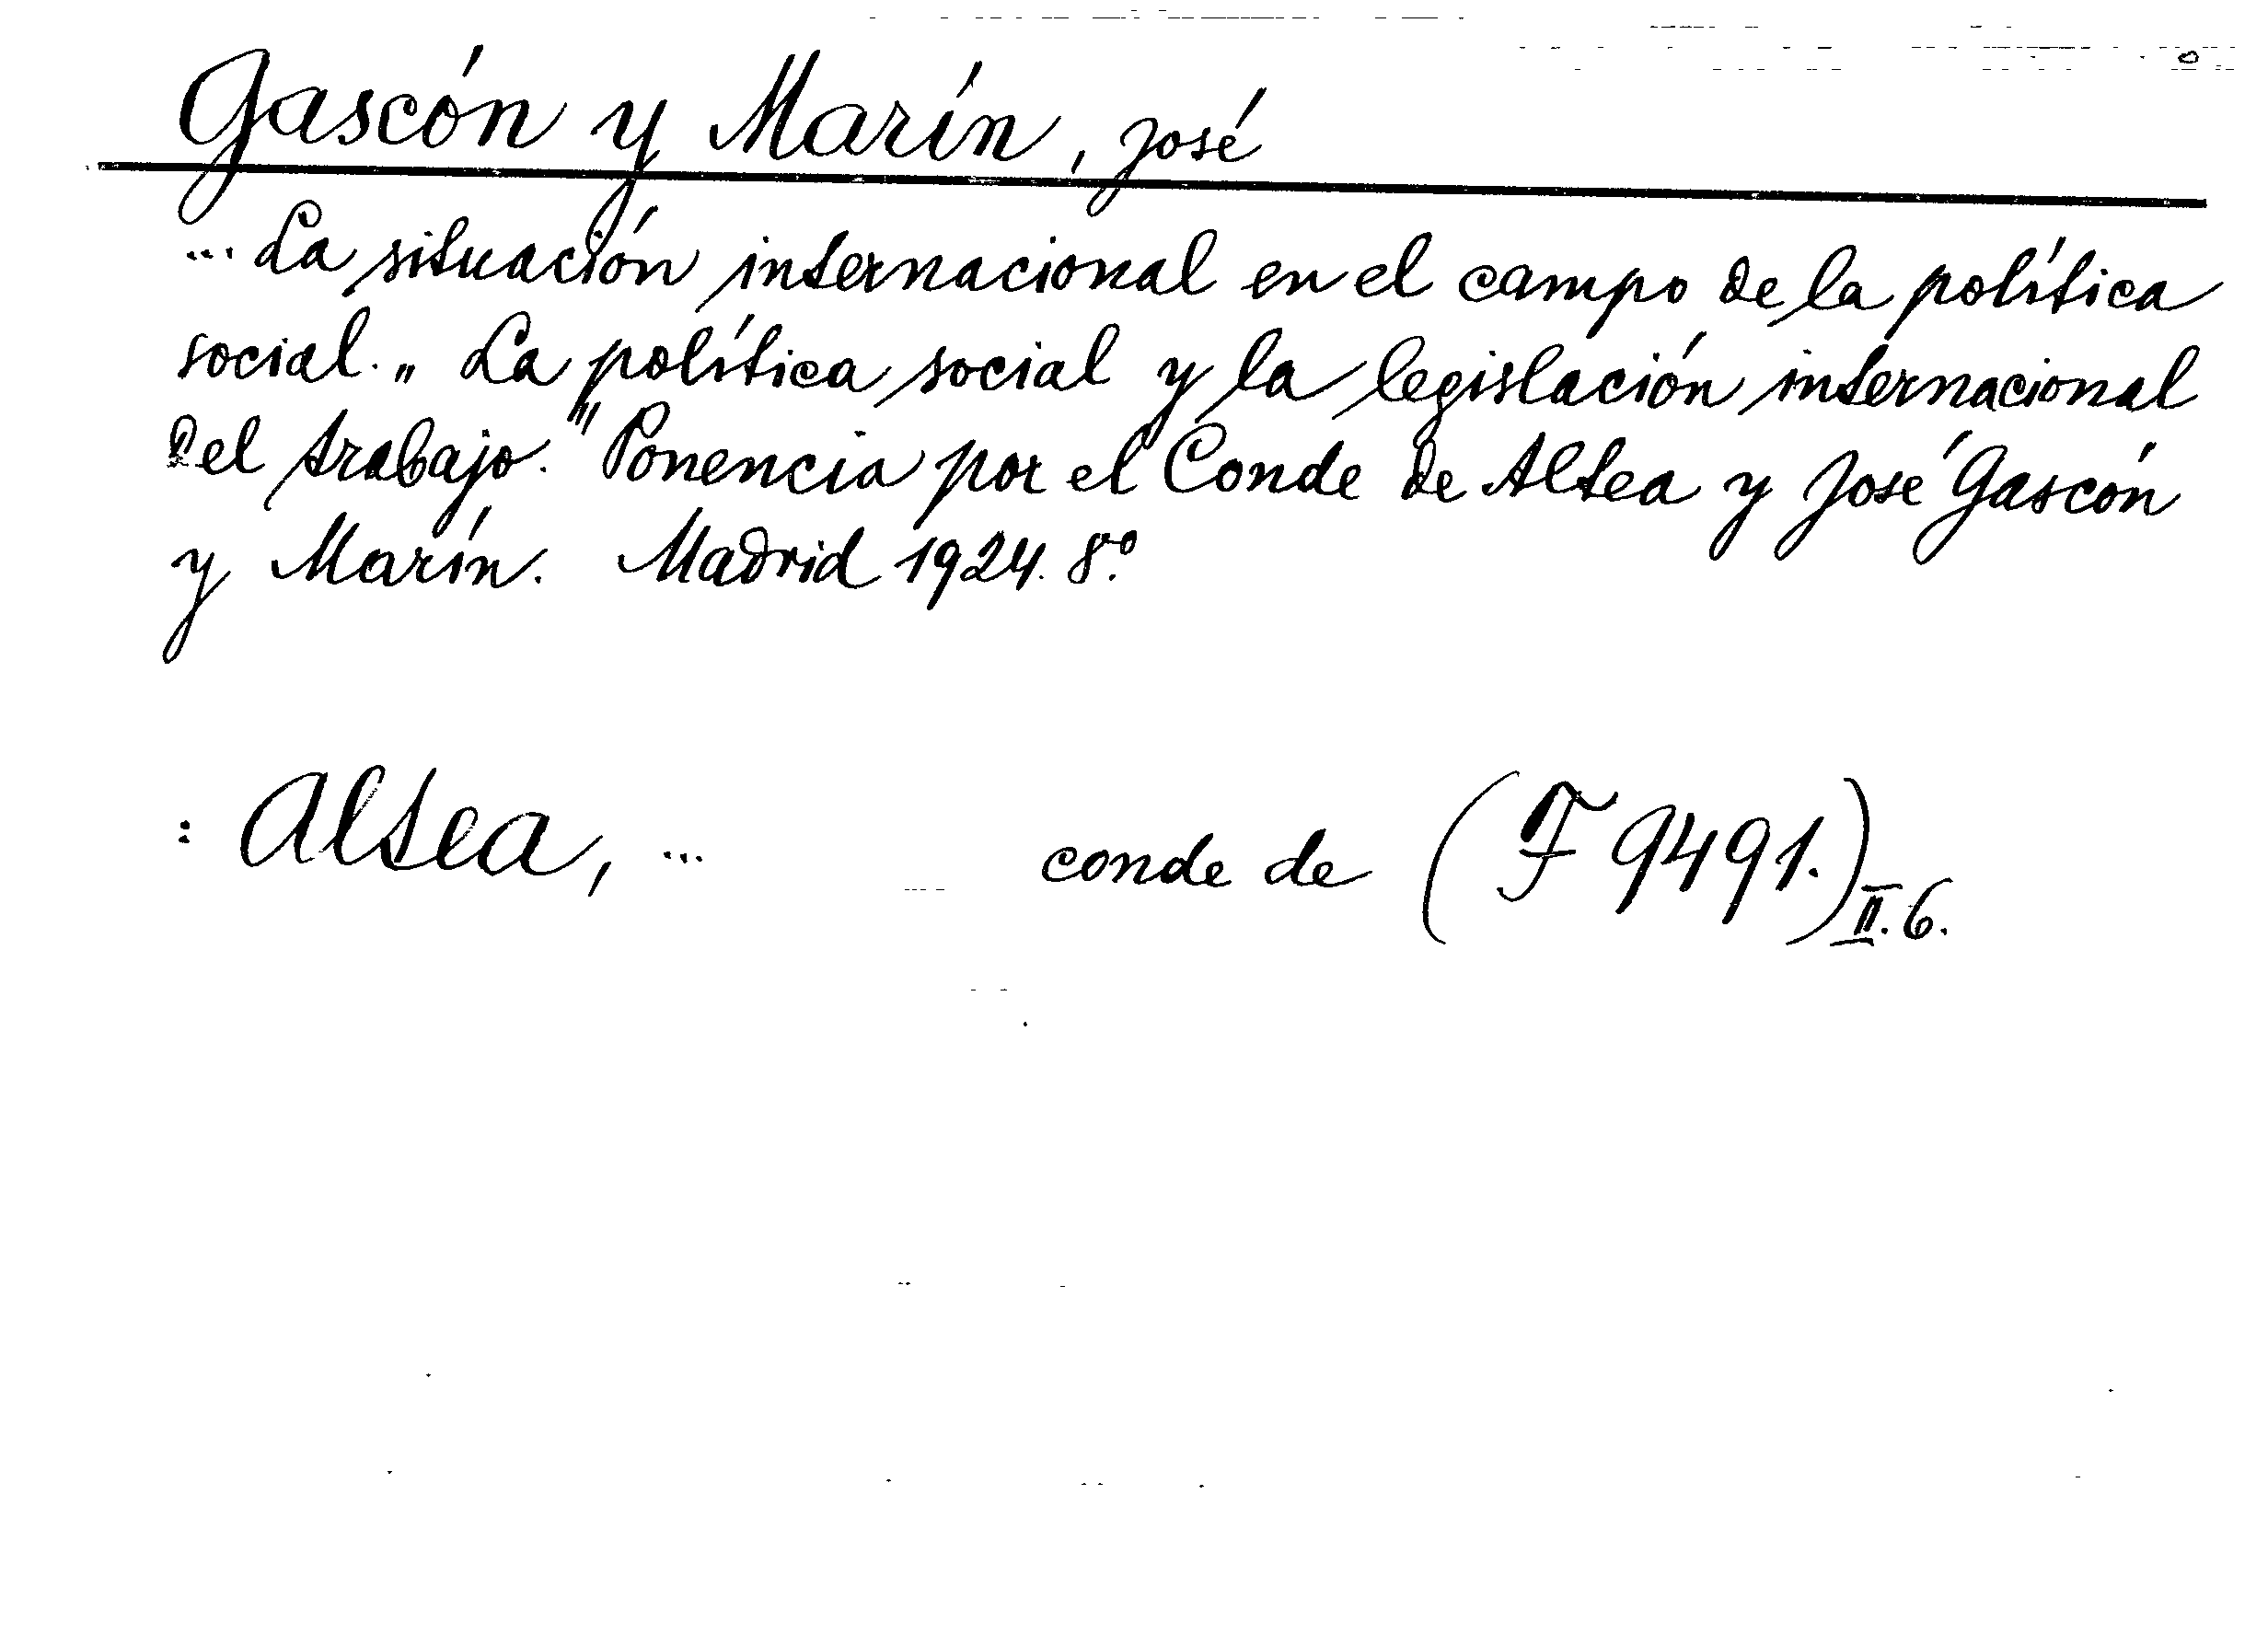 Gascón y Marín, José
... La situación internacional en el campo de la política
social. „ La política social y la legislación internacional
del trabajo." Ponencia por el Conde de Altea y José Gascón
y Marín. Madrid 1924. 8.º
: Altea, ... conde de (F 9491.) II. 6.